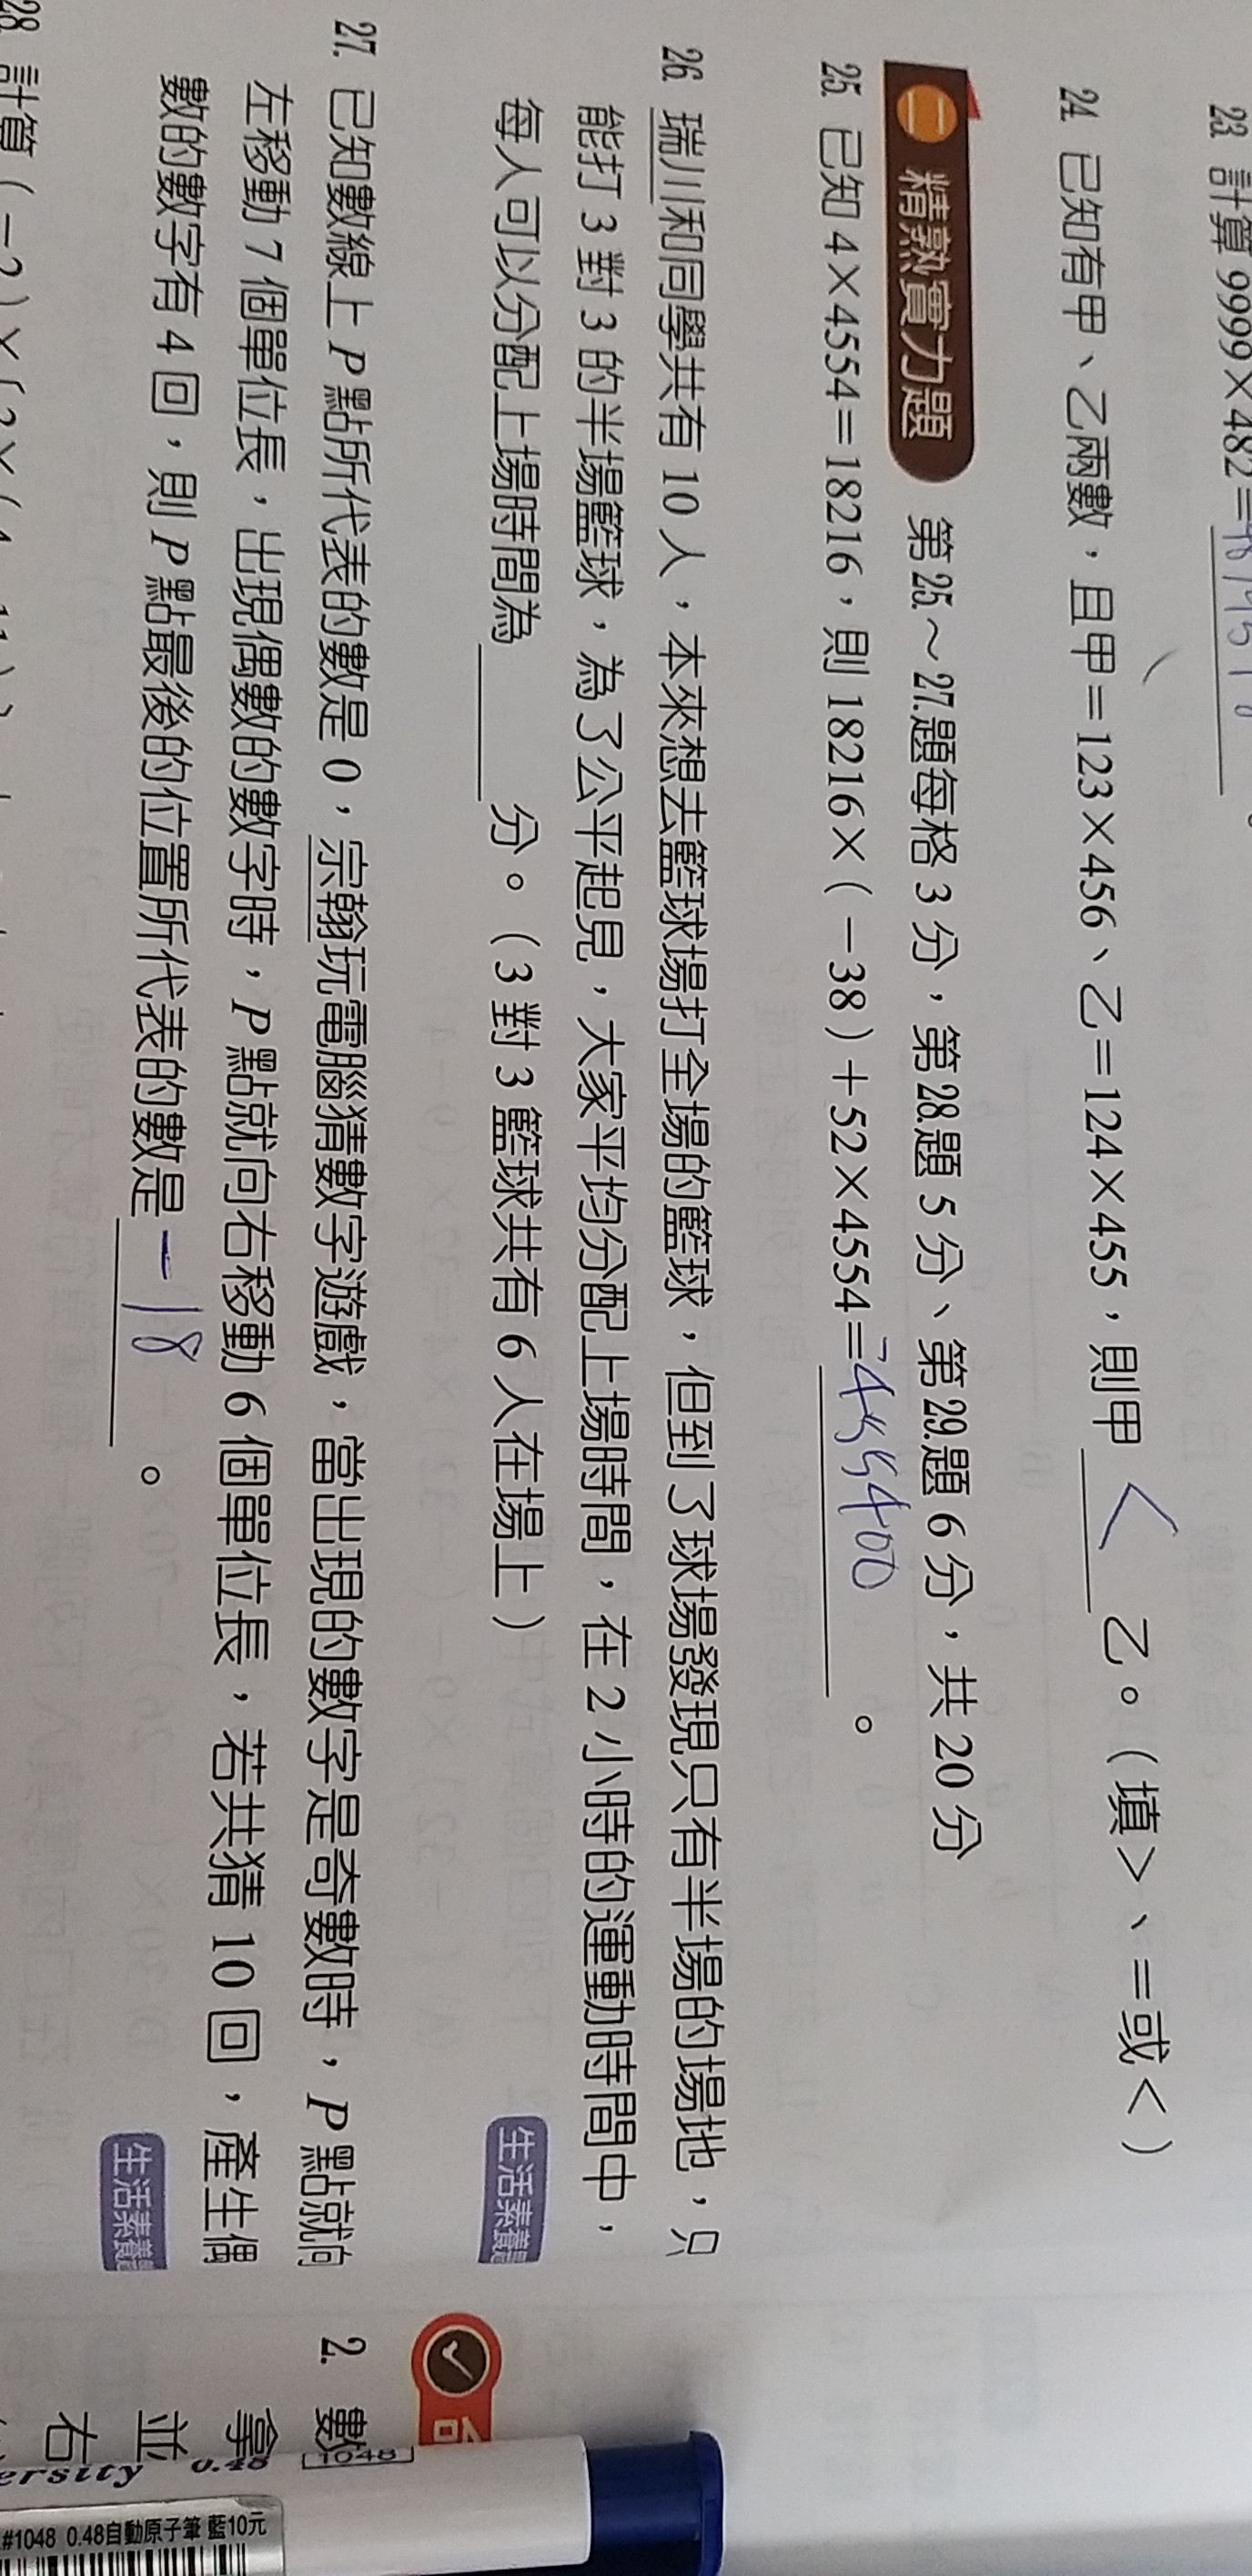 23. 計算 9999×482=
24. 已知有甲、乙兩數，且甲=123×456、乙=124×455，則甲 < 乙。（填>、=或<）
二 精熟實力題 第25.～27.題每格3分，第28.題5分、第29.題6分，共20分
25. 已知4×4554=18216，則18216×(－38)+52×4554=-455400。
26. 瑞川和同學共有10人，本來想去籃球場打全場的籃球，但到了球場發現只有半場的場地，只
能打3對3的半場籃球，為了公平起見，大家平均分配上場時間，在2小時的運動時間中，
每人可以分配上場時間為 分。（3對3籃球共有6人在場上）
生活素養題
27. 已知數線上P點所代表的數是0，宗翰玩電腦猜數字遊戲，當出現的數字是奇數時，P點就向
左移動7個單位長，出現偶數的數字時，P點就向右移動6個單位長，若共猜10回，產生偶
數的數字有4回，則P點最後的位置所代表的數是-18。
生活素養題
28. 計算(－2)×
2. 數
拿
並
右
1048
ersity 0.48
#1048 0.48自動原子筆 藍10元